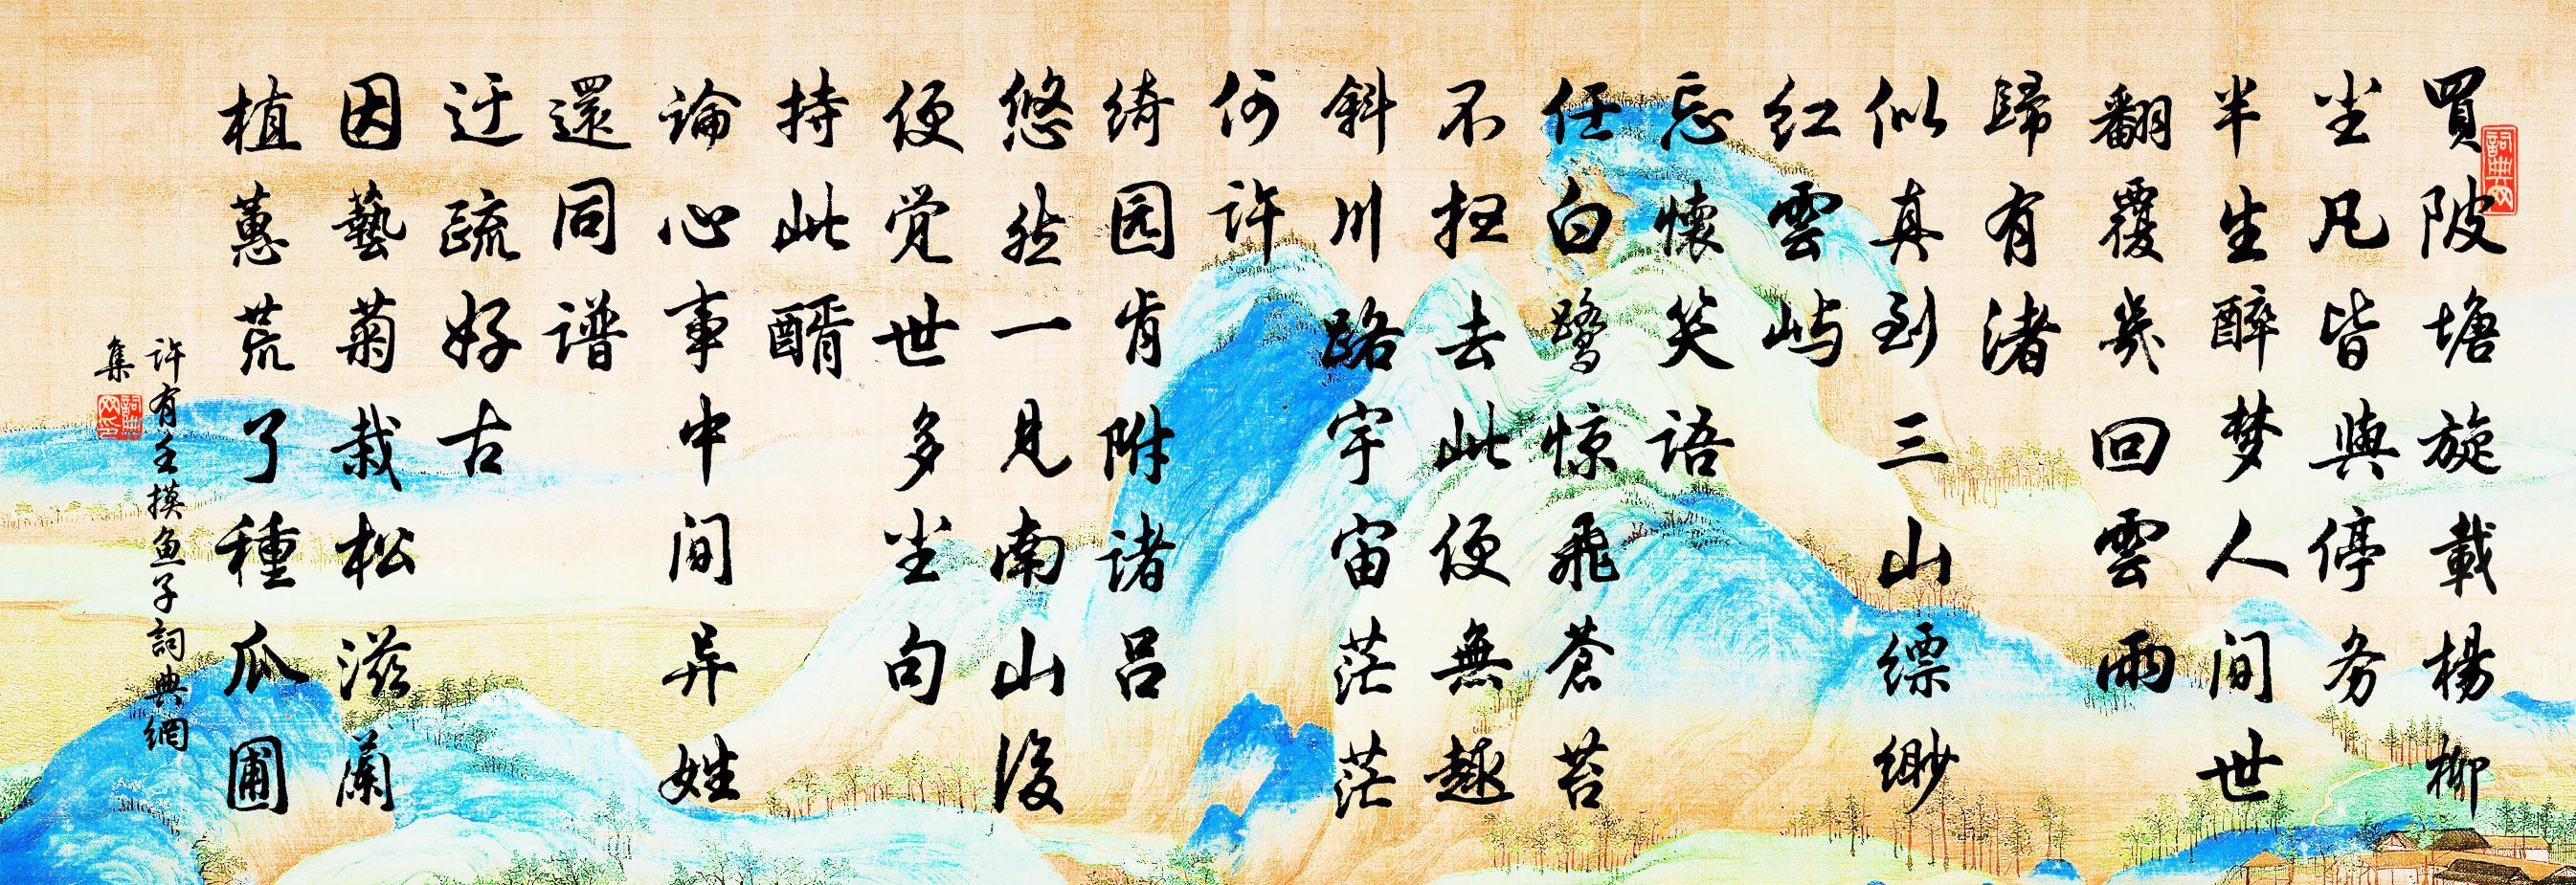 買陂塘旋載楊柳
尘凡皆與停务
半生醉梦人间世
翻覆幾回雲雨
歸有渚
似真到三山缥缈
红雲屿
忘懷笑语
任白鹭惊飛蒼苔
不扫去此便無趣
斜川路宇宙茫茫
何许
绮园肯附诸吕
悠然一見南山後
便觉世多尘句
持此醑
論心事中间异姓
還同谱
迂疏好古
因藝菊栽松滋蘭
植蕙荒了種瓜圃
许有壬摸鱼子詞典網
集
詞典网
詞典网印